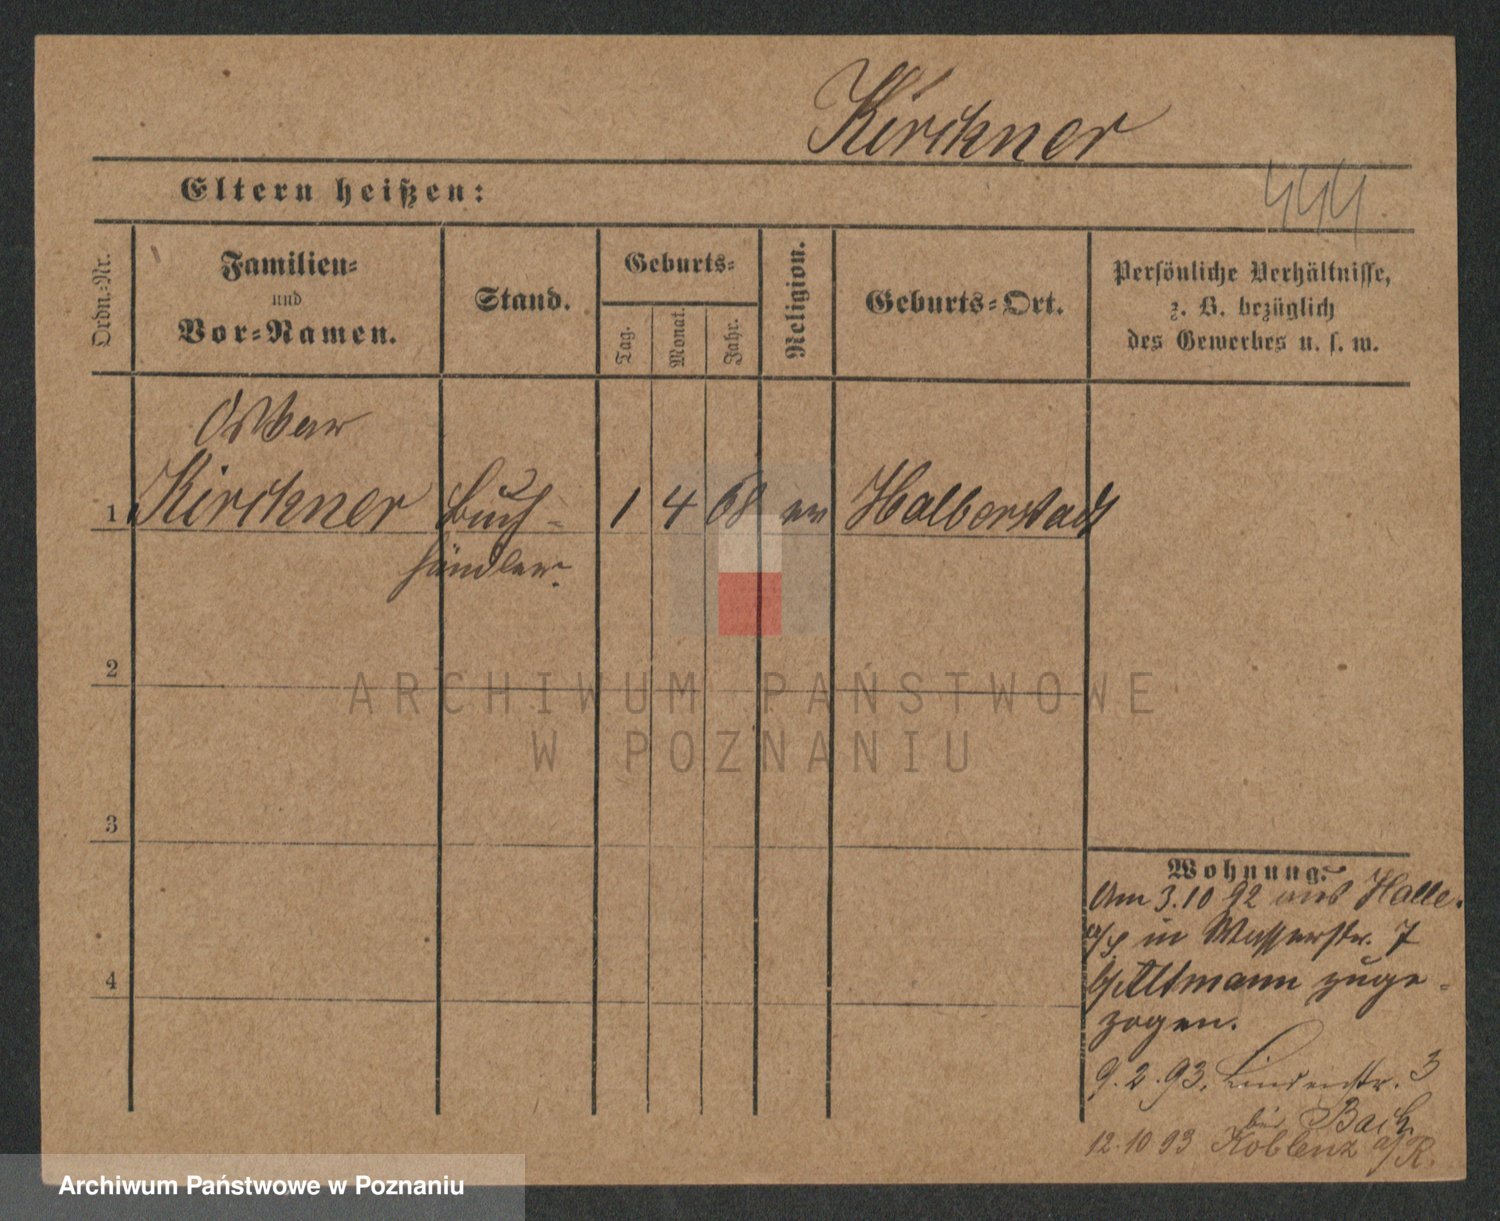 Kirchner
444
Eltern heißen:
Ordn.-Nr.
Familien-
und
Vor-Namen.
Stand.
Geburts-
Tag.
Monat.
Jahr.
Religion.
Geburts-Ort.
Persönliche Verhältnisse,
z. B. bezüglich
des Gewerbes u. s. w.
Oskar
1 Kirchner Buch- 1 4 68 ev Halberstadt
händler.
2
3
4
Wohnung.
Am 3.10 92 aus Halle
in Wasserstr. 7
Altmann zuge-
zogen.
9.2.93. Lindenstr. 3
bei Bach
12.10 93 Koblenz a/R.
ARCHIWUM PAŃSTWOWE
W POZNANIU
Archiwum Państwowe w Poznaniu